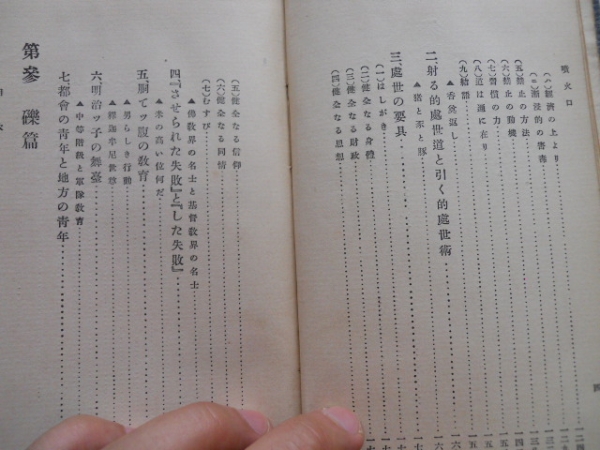 噴火口
(ハ)經濟の上より
(五)禁止の方法
(六)禁止の動機
(七)習慣の力
(八)道は邇に在り
(九)結語
▲香奠返し
二、射る的處世道と引く的處世術
▲猪と豕と豚
三、處世の要具
(一)はしがき
(二)健全なる身體
(三)健全なる財政
(四)健全なる思想
四
(五)健全なる信仰
(六)健全なる同情
(七)むすび
▲佛敎界の名士と基督敎界の名士
四、『させられた失敗』と『した失敗』
▲鼻の高い位何だ
五、胴てッ腹の敎育
▲男らしき行動
▲釋迦牟尼世尊
六、明治ッ子の舞臺
▲中等階級と軍隊敎育
七、都會の青年と地方の青年
第參 礫篇